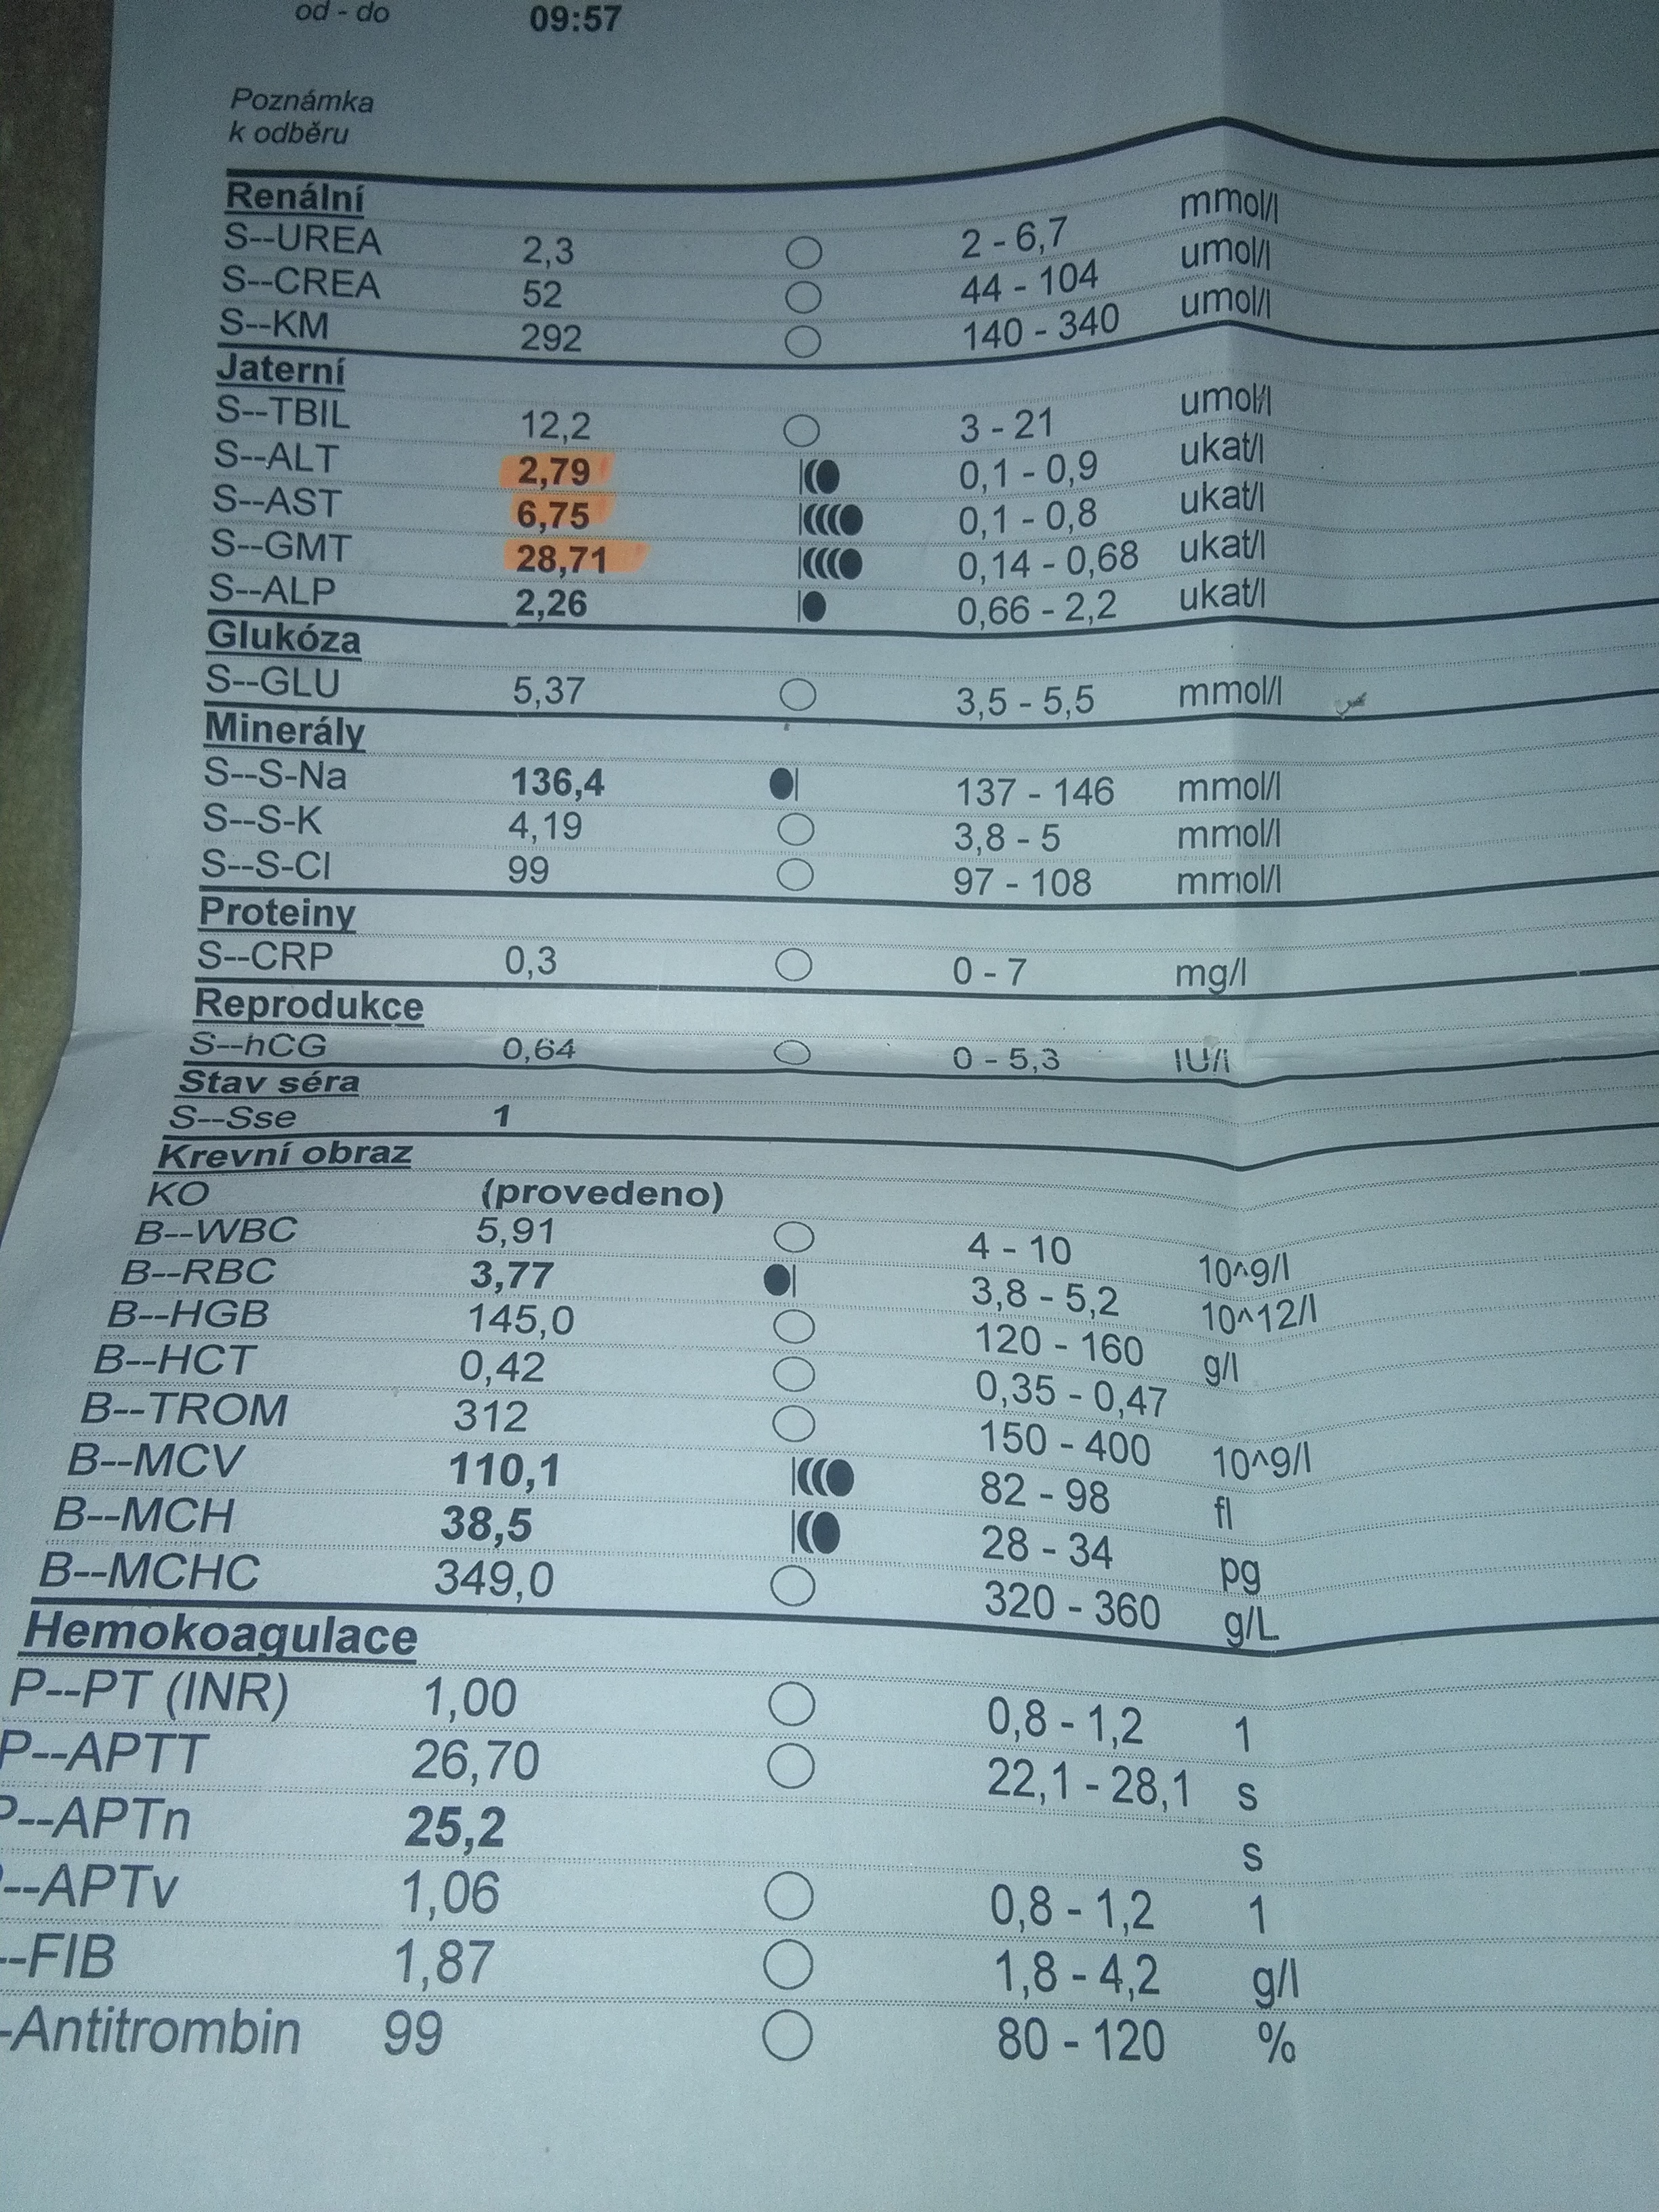 od - do 09:57
Poznámka
k odběru
Renální
S--UREA 2,3 2 - 6,7 mmol/l
S--CREA 52 44 - 104 umol/l
S--KM 292 140 - 340 umol/l
Jaterní
S--TBIL 12,2 3 - 21 umol/l
S--ALT 2,79 0,1 - 0,9 ukat/l
S--AST 6,75 0,1 - 0,8 ukat/l
S--GMT 28,71 0,14 - 0,68 ukat/l
S--ALP 2,26 0,66 - 2,2 ukat/l
Glukóza
S--GLU 5,37 3,5 - 5,5 mmol/l
Minerály
S--S-Na 136,4 137 - 146 mmol/l
S--S-K 4,19 3,8 - 5 mmol/l
S--S-Cl 99 97 - 108 mmol/l
Proteiny
S--CRP 0,3 0 - 7 mg/l
Reprodukce
S--hCG 0,64 0 - 5,3 IU/l
Stav séra
S--Sse 1
Krevní obraz
KO (provedeno)
B--WBC 5,91 4 - 10 10^9/l
B--RBC 3,77 3,8 - 5,2 10^12/l
B--HGB 145,0 120 - 160 g/l
B--HCT 0,42 0,35 - 0,47
B--TROM 312 150 - 400 10^9/l
B--MCV 110,1 82 - 98 fl
B--MCH 38,5 28 - 34 pg
B--MCHC 349,0 320 - 360 g/L
Hemokoagulace
P--PT (INR) 1,00 0,8 - 1,2 1
P--APTT 26,70 22,1 - 28,1 s
P--APTn 25,2 s
--APTv 1,06 0,8 - 1,2 1
--FIB 1,87 1,8 - 4,2 g/l
-Antitrombin 99 80 - 120 %